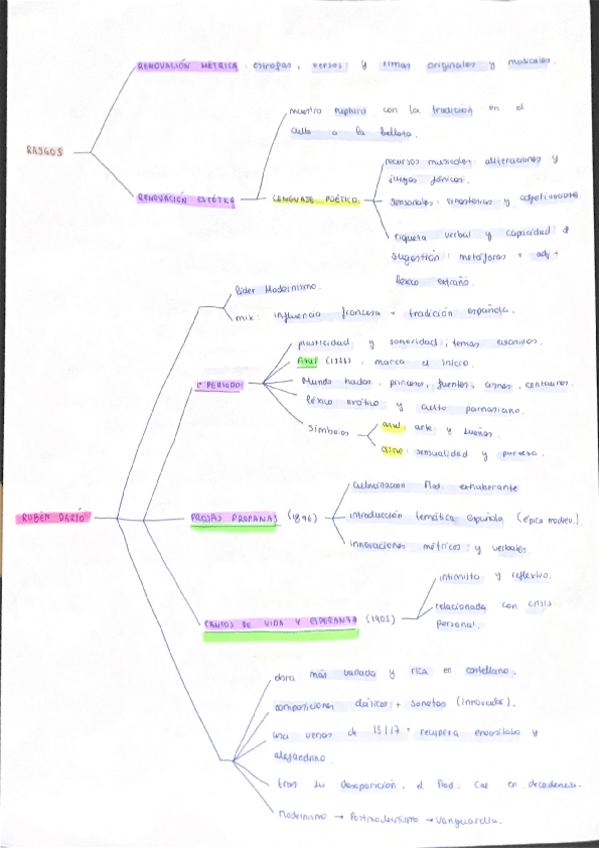 RASGOS
RENOVACIÓN MÉTRICA: estrofas, versos y rimas originales y musicales.
RENOVACIÓN ESTÉTICA
muestra ruptura con la tradición en el
culto a la belleza.
LENGUAJE POÉTICO
recursos musicales: aliteraciones y
juegos fónicos.
sensoriales: sinestesias y
riqueza verbal y capacidad d
sugestión: metáforas + adj +
léxico extraño.
RUBÉN DARÍO
líder Modernismo.
mix: influencia francesa + tradición española.
1º PERIODO
plasticidad y sonoridad; temas
Azul (1888), marca el inicio.
Mundo hadas, princesas, fuentes, cisnes, centauros.
léxico exótico y culto parnasiano.
Símbolos
azul: arte y sueños.
cisne: sensualidad y pureza.
PROSAS PROFANAS (1896)
culminación Mod. exhuberante
introducción temática española (épica mediev.)
innovaciones métricas y verbales.
CANTOS DE VIDA Y ESPERANZA (1905)
intimista y reflexivo.
relacionada con crisis
personal.
obra más variada y rica en castellano.
composiciones clásicas + sonetos (innovador).
usa versos de 15/17 + recupera eneasílabo y
alejandrino.
tras su desaparición, el Mod. cae en decadencia.
Modernismo → Postmodernismo → Vanguardia.